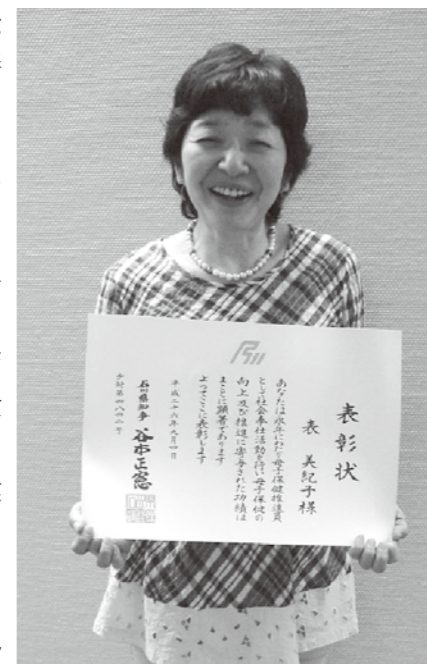 表彰状
表 美紀子様
あなたは永年にわたり母子保健推進員
として社会奉仕活動を行い母子保健の
向上及び推進に寄与された功績は
まことに顕著であります
よってここに表彰します
平成二十六年九月四日
石川県知事 谷本正憲
少対第四八四二号